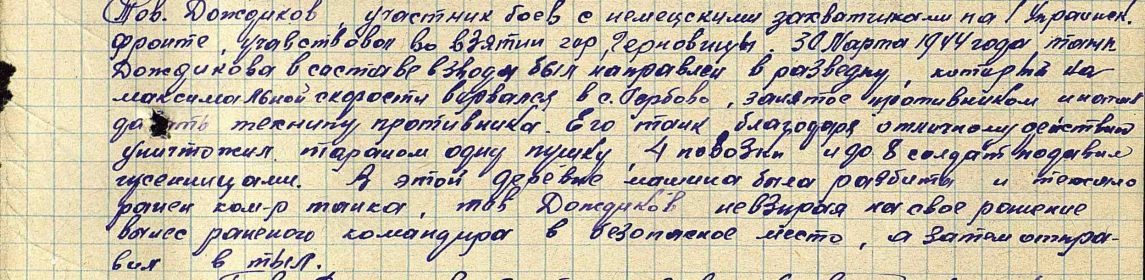 Тов. Дождиков, участник боев с немецскими захватчиками на I Украинск.
фронте, учавствовал во взятии гор Черновицы. 30 Марта 1944 года танк
Дождикова в составе взвода был направлен в разведку, который на
максимальной скорости ворвался в с. Гербово, занятое противником и начал
да ить технику противника. Его танк благодаря отличному действию
уничтожил тараном одну пушку, 4 повозки и до 8 солдат подавил
гусенницами. В этой деревне машина была разбита и тяжело
ранен ком-р танка, тов Дождиков невзирая на свое ранение
вынес раненого командира в безопасное место, а затем отпра-
вил в тыл.